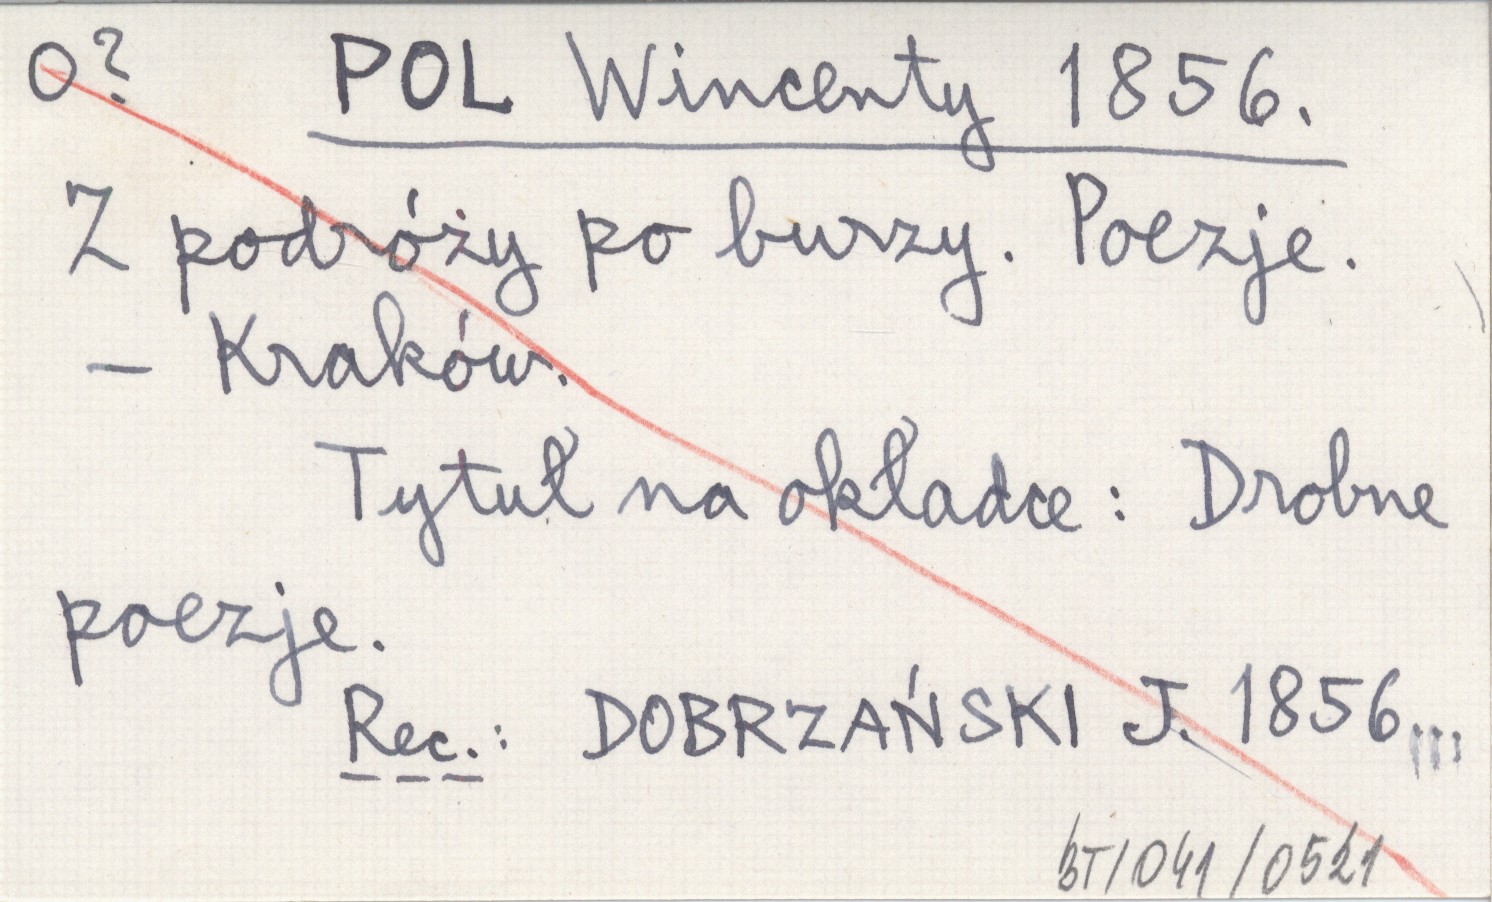 O? POL Wincenty 1856.
Z podróży po burzy. Poezje.
– Kraków.
Tytuł na okładce: Drobne
poezje.
Rec.: DOBRZAŃSKI J. 1856...
BT/041/0521